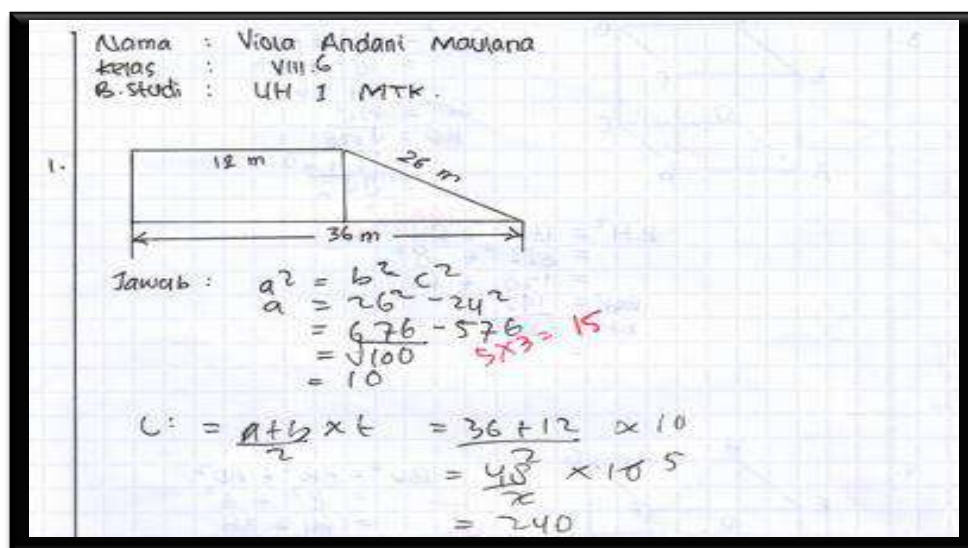 Nama : Viola Andani Maulana
Kelas : VIII.6
B. Studi : UH I MTK.
1.
12 m
26 m
36 m
Jawab : a² = b² c²
a = 26² - 24²
= 676 - 576
5x3 = 15
= √100
= 10
L: = a+b/2 x t = 36 + 12/2 x 10
= 48/2 x 10 5
= 240